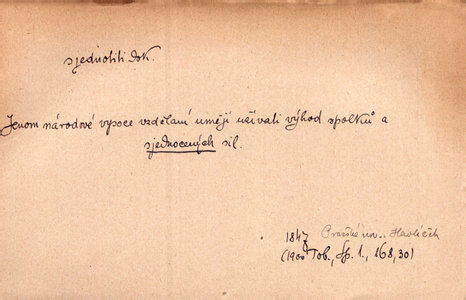 sjednotiti dok.
Jenom národové vysoce vzdělaní umějí užívati výhod spolků a
sjednocených sil.
1847 Pražské nov. Havlíček
(1900 Tob., Sp. 1., 168, 30)